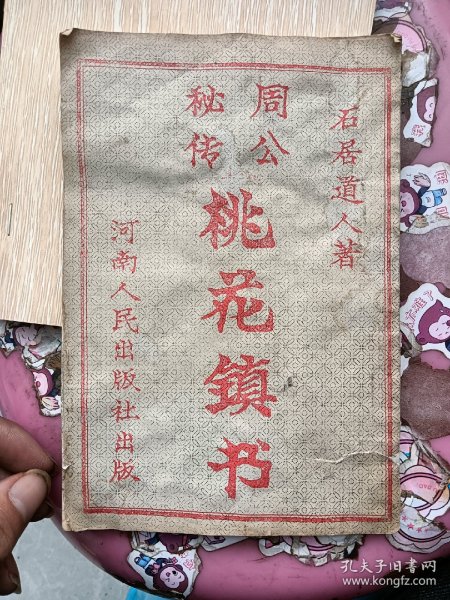 石居道人著
周公
秘传
桃花鎮书
河南人民出版社出版
孔夫子旧书网
www.kongfz.com